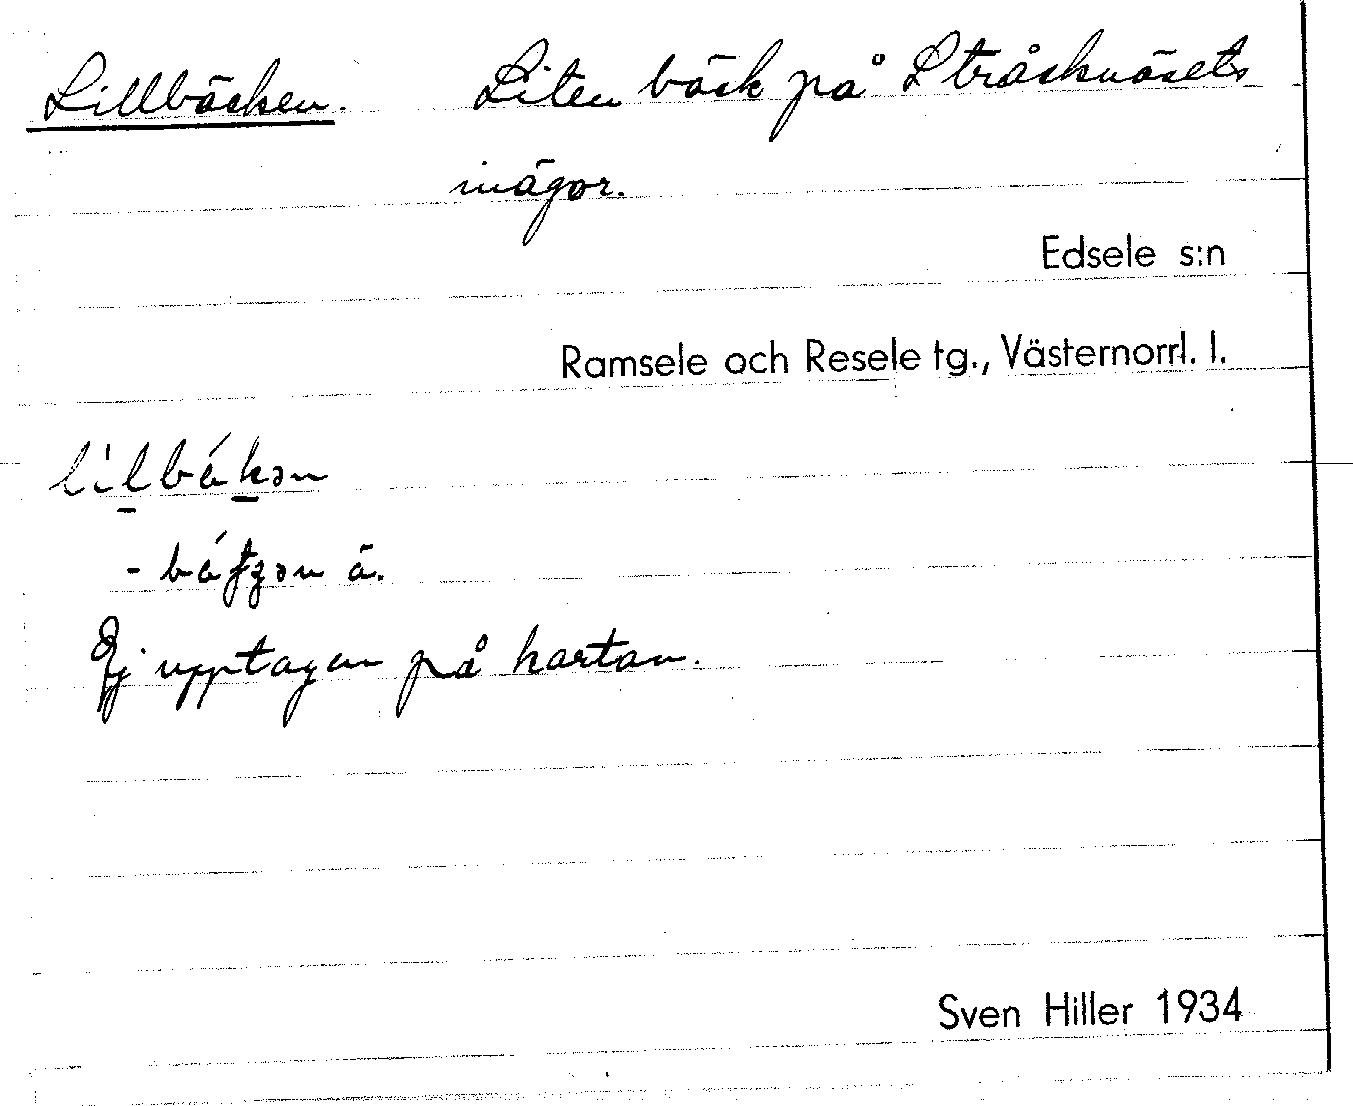 Lillbäcken. Liten bäck på Stråsknäsets
inägor.
Edsele s:n
Ramsele och Resele tg., Västernorrl. l.
- ä.
Ej upptagen på kartan.
Sven Hiller 1934